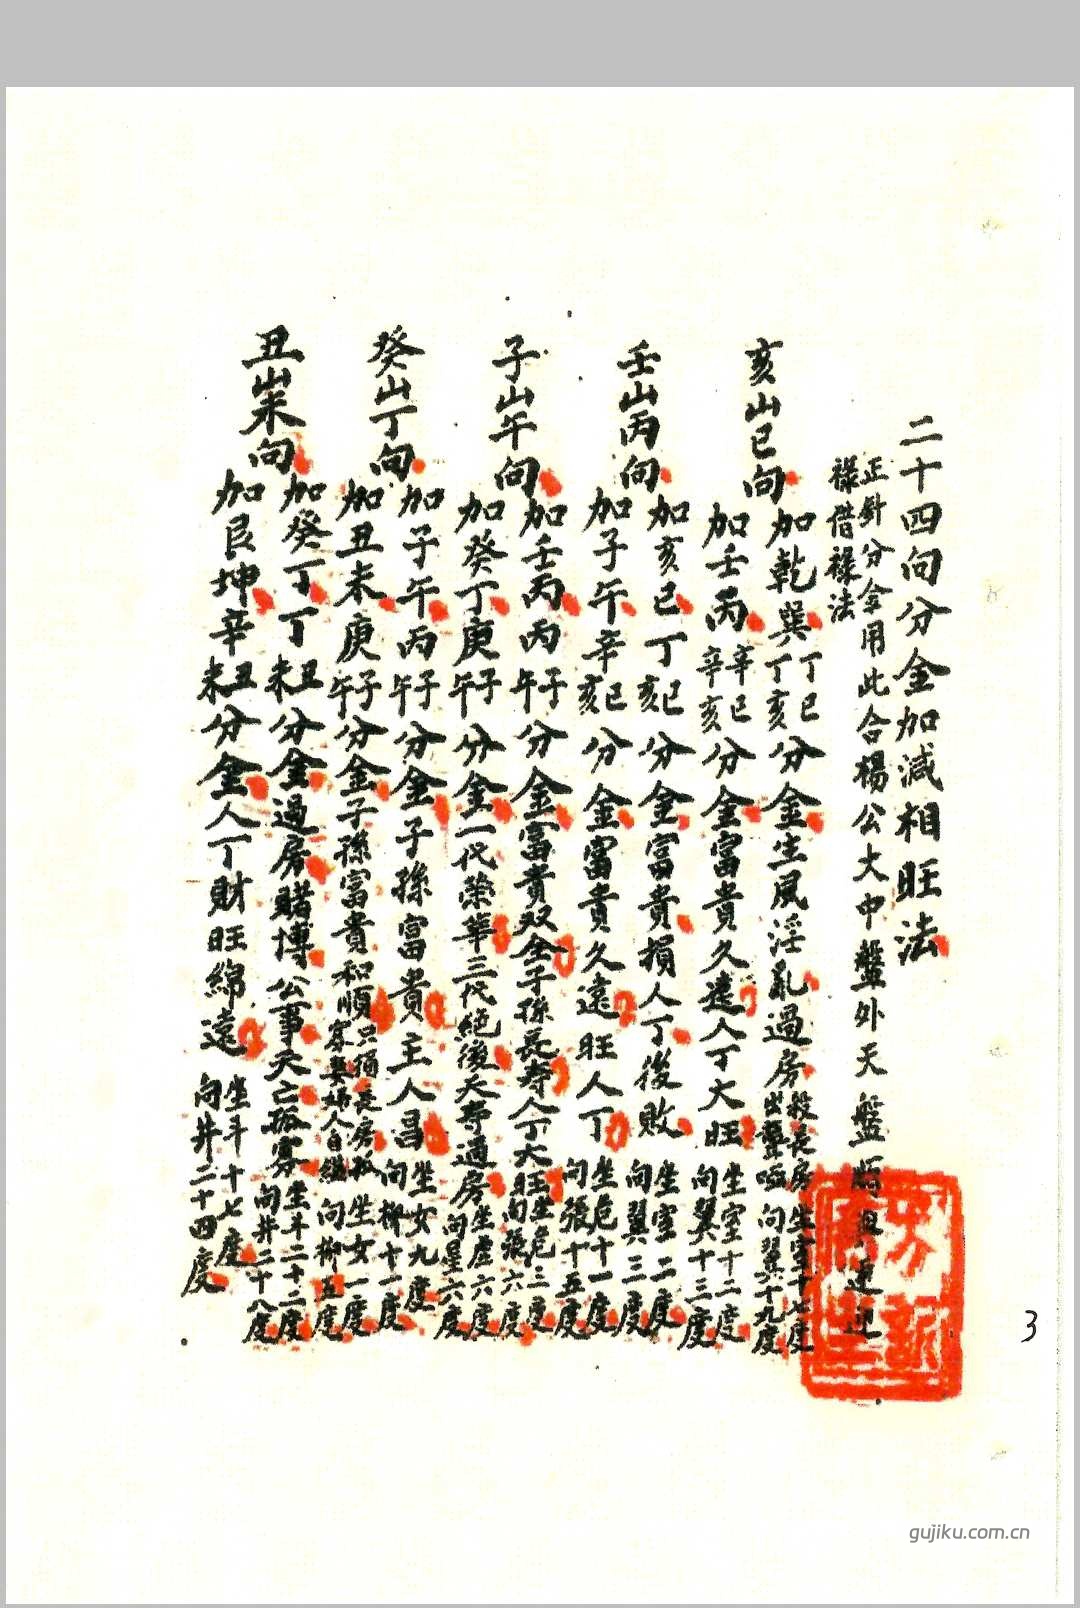 二十四向分金加减相旺法
正針分金用此合楊公大中盤外天盤
祿借祿法
亥山巳向
加乾巽丁巳丁亥分金生風淫亂過房 坐室十七度 向翼十九度
加壬丙辛巳辛亥分金富貴久遠人丁大旺 坐室十二度 向翼十三度
壬山丙向
加亥巳丁巳亥分金富貴損人丁後敗 坐室二度 向翼三度
加子午辛巳亥分金富貴久遠旺人丁 坐危十一度 向張十五度
子山午向
加壬丙丙子午分金富貴双全子孫長寿人丁大旺 坐危三度 向張六度
加癸丁庚子午分金一代榮華三代絕後夭壽過房 坐虛六度 向星六度
癸山丁向
加子午丙子午分金子孫富貴主人昌 坐女九度 向柳十一度
加丑未庚子午分金子孫富貴和順 坐女一度 向柳五度
丑山未向
加癸丁丁丑未分金過房賭博公事夭亡孤寡 坐斗二十二度 向井二十八度
加艮坤辛丑未分金人丁財旺綿遠 坐斗十七度 向井二十四度
3
gujiku.com.cn